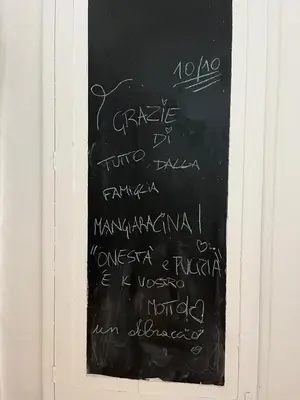 10/10
GRAZIE
DI
TUTTO DALLA
FAMIGLIA
MANGIARACINA!
"ONESTÀ e PULIZIA"
È IL VOSTRO
MOTTO!
un abbraccio